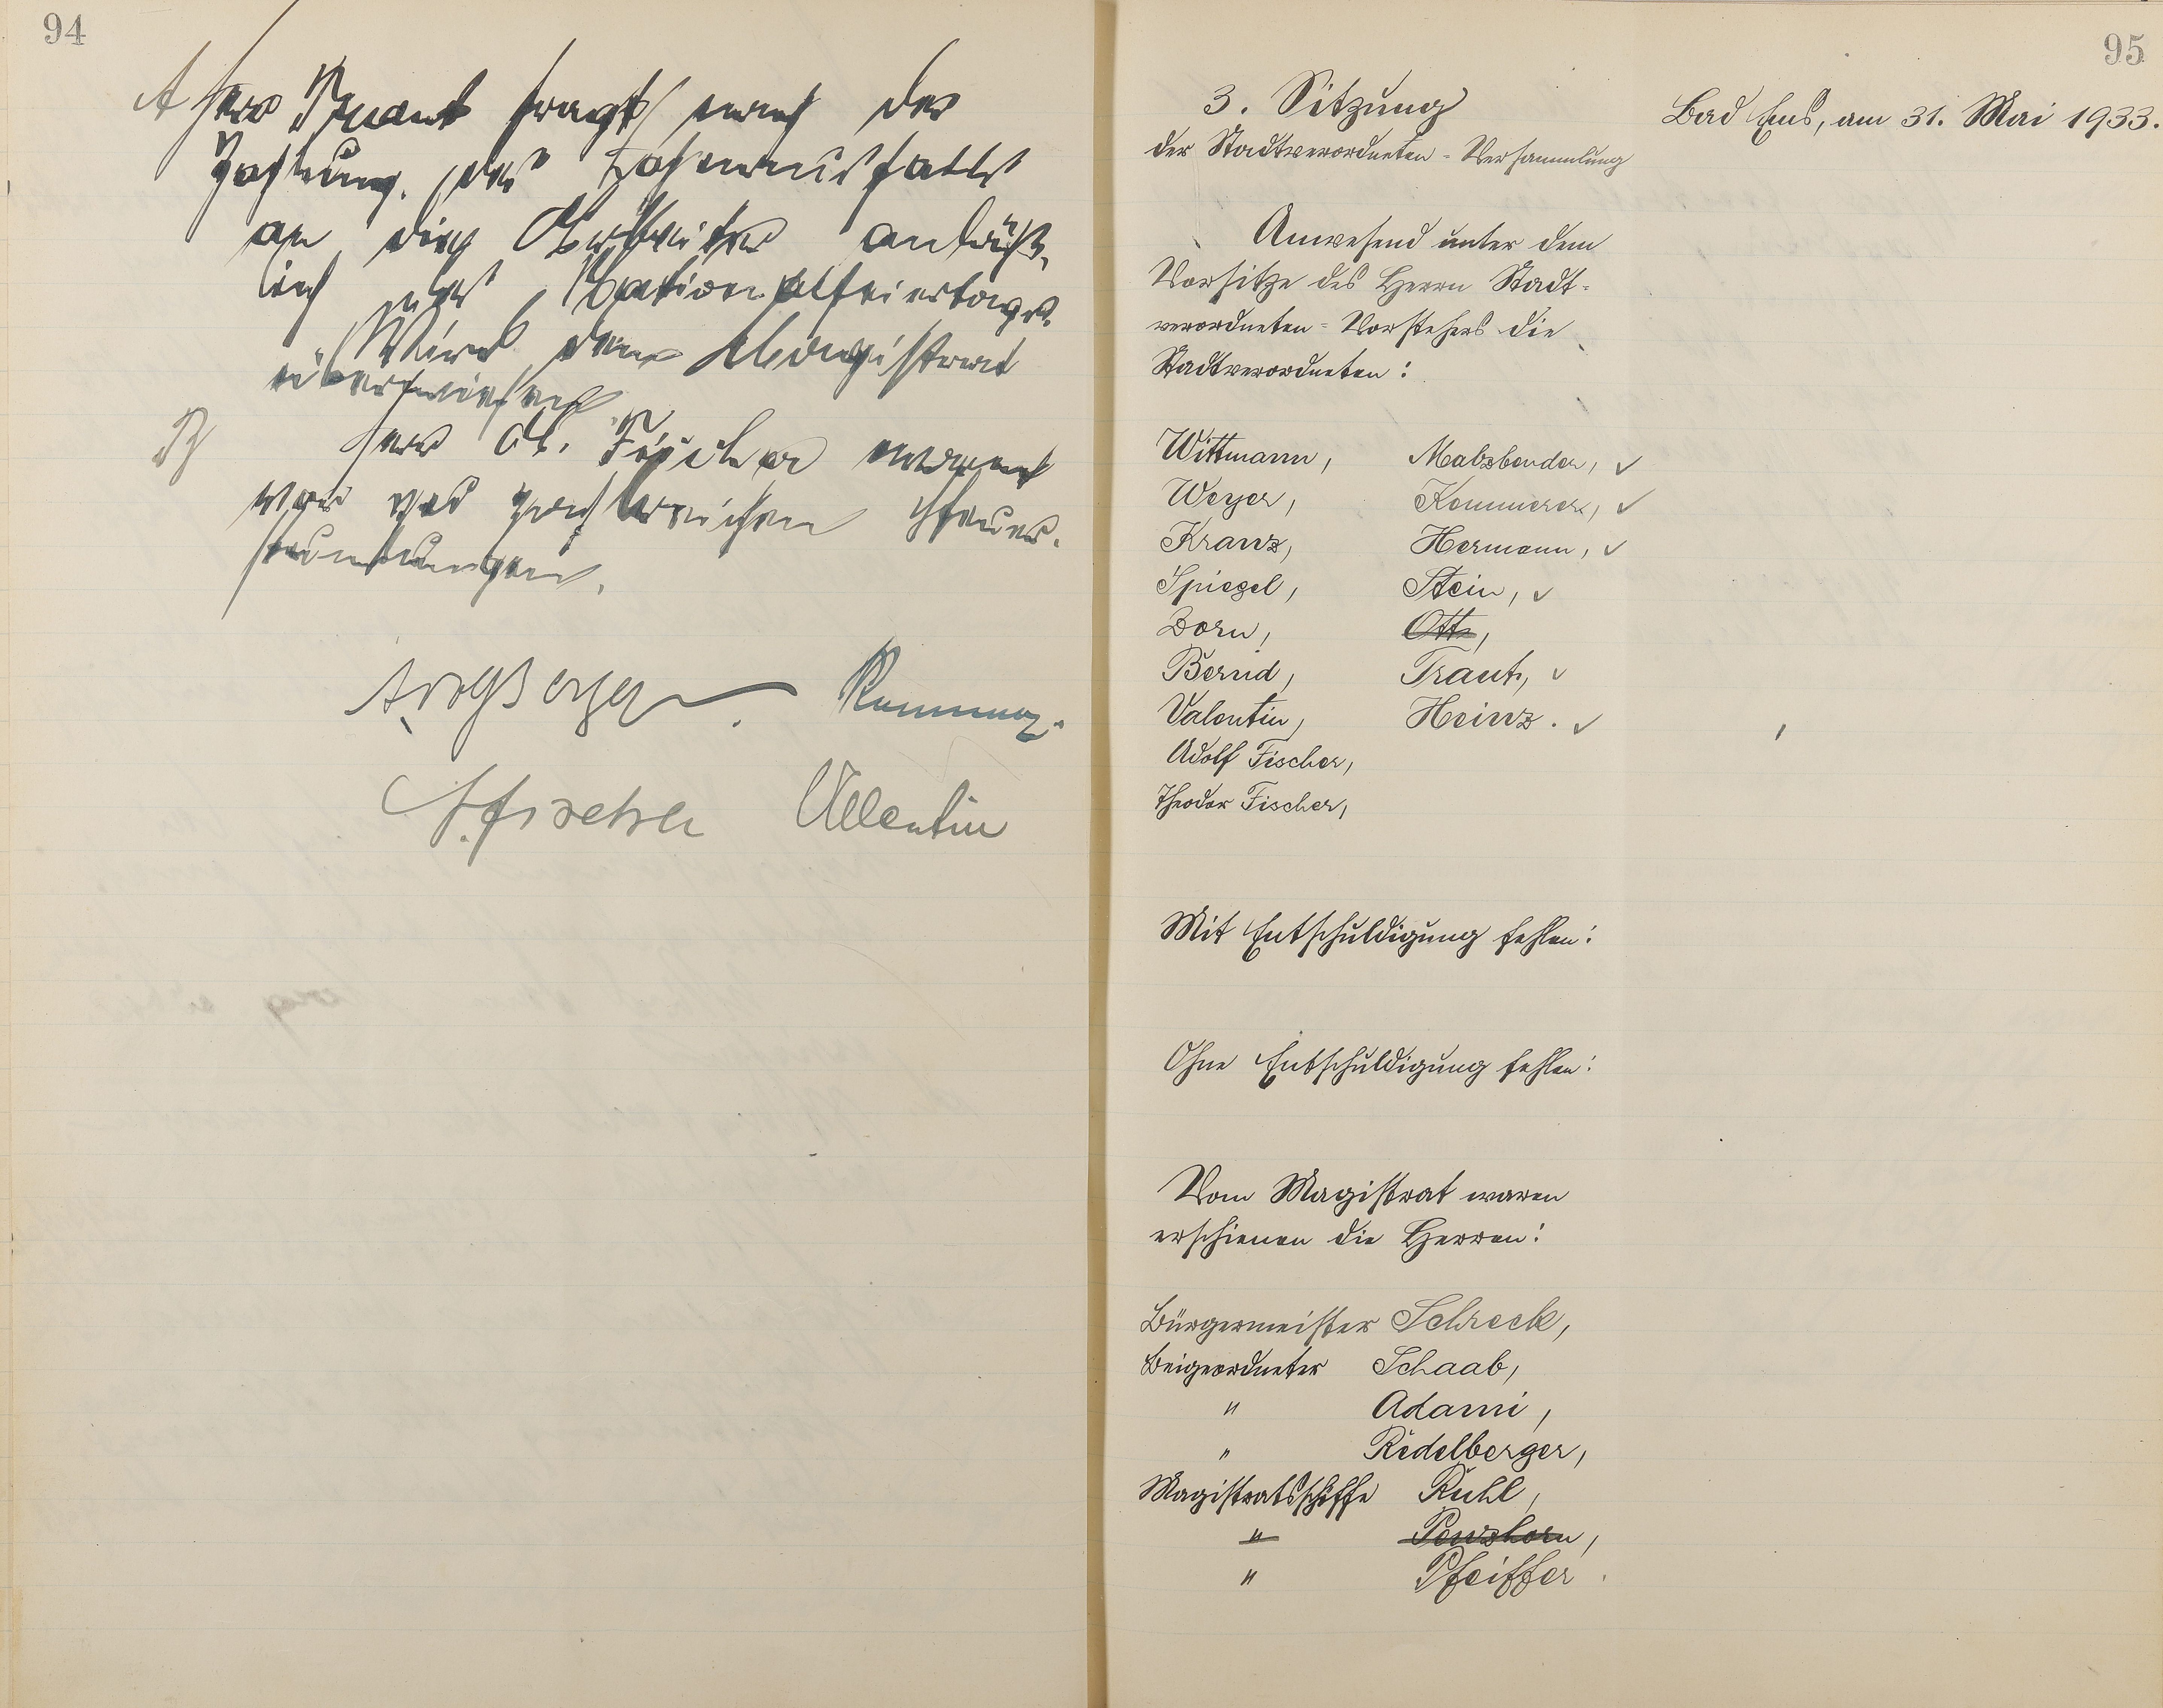 94
A Herr Traut fragt nach der
Zahlung des Lohnausfalls
an die Arbeiter anläß-
lich des Nationalfeiertages.
Wird dem Magistrat
überwiesen
B Herr Ad. Fischer warnt
vor den zahlreichen Steuer-
stundungen.
Kammerer
A. Fischer Valentin
95
3. Sitzung
der Stadtverordneten-Versammlung
Bad Ems, am 31. Mai 1933.
Anwesend unter dem
Vorsitze des Herrn Stadt-
verordneten-Vorstehers die
Stadtverordneten:
Wittmann, Malzbender, ✓
Weyer, Kammerer, ✓
Kranz, Hermann, ✓
Spiegel, Stein, ✓
Born, Otto,
Bernd, Traut, ✓
Valentin, Heinz. ✓
Adolf Fischer,
Theodor Fischer,
Mit Entschuldigung fehlen:
Ohne Entschuldigung fehlen:
Vom Magistrat waren
erschienen die Herren:
Bürgermeister Schreck,
Beigeordneter Schaab,
" Adami,
" Redelberger,
Magistratsschöffe Ruhl,
" Penzhorn,
" Pfeiffer.